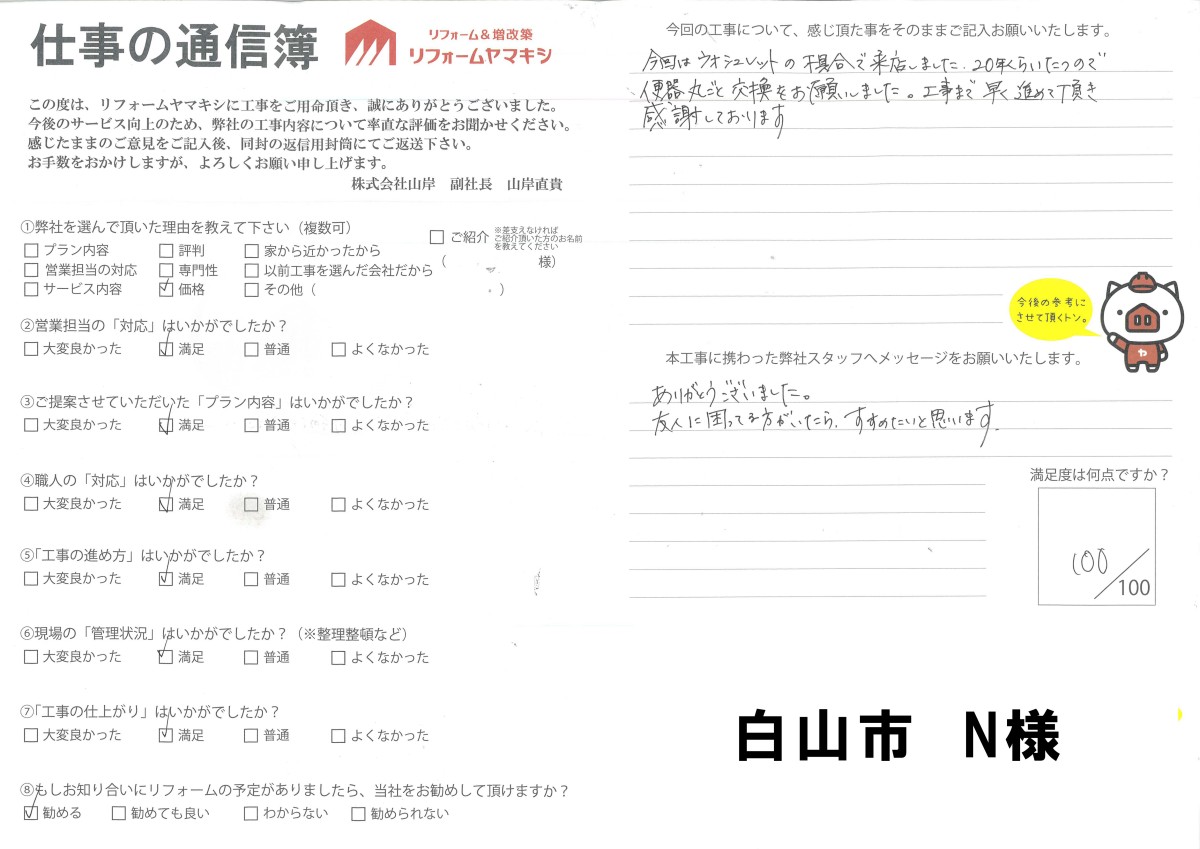 仕事の通信簿
リフォーム&増改築
リフォームヤマキシ
この度は、リフォームヤマキシに工事をご用命頂き、誠にありがとうございました。
今後のサービス向上のため、弊社の工事内容について率直な評価をお聞かせください。
感じたままのご意見をご記入後、同封の返信用封筒にてご返送下さい。
お手数をおかけしますが、よろしくお願い申し上げます。
株式会社山岸 副社長 山岸直貴
①弊社を選んで頂いた理由を教えて下さい(複数可)
□ プラン内容 □ 評判 □ 家から近かったから
□ 営業担当の対応 □ 専門性 □ 以前工事を選んだ会社だから
□ サービス内容 ☑ 価格 □ その他( )
□ ご紹介 ※差支えなければ
ご紹介頂いた方のお名前
を教えてください
( 様)
②営業担当の「対応」はいかがでしたか?
□ 大変良かった ☑ 満足 □ 普通 □ よくなかった
③ご提案させていただいた「プラン内容」はいかがでしたか?
□ 大変良かった ☑ 満足 □ 普通 □ よくなかった
④職人の「対応」はいかがでしたか?
□ 大変良かった ☑ 満足 □ 普通 □ よくなかった
⑤「工事の進め方」はいかがでしたか?
□ 大変良かった ☑ 満足 □ 普通 □ よくなかった
⑥現場の「管理状況」はいかがでしたか?(※整理整頓など)
□ 大変良かった ☑ 満足 □ 普通 □ よくなかった
⑦「工事の仕上がり」はいかがでしたか?
□ 大変良かった ☑ 満足 □ 普通 □ よくなかった
⑧もしお知り合いにリフォームの予定がありましたら、当社をお勧めして頂けますか?
☑ 勧める □ 勧めても良い □ わからない □ 勧められない
今回の工事について、感じ頂た事をそのままご記入お願いいたします。
今回はウオシュレットの不具合で来店しました。20年くらいたつので
便器丸ごと交換をお願いしました。工事まで早く進めて頂き
感謝しております
今後の参考に
させて頂くトン。
ヤ
本工事に携わった弊社スタッフへメッセージをお願いいたします。
ありがとうございました。
友人に困ってる方がいたら、すすめたいと思います。
満足度は何点ですか?
100/100
白山市 N様